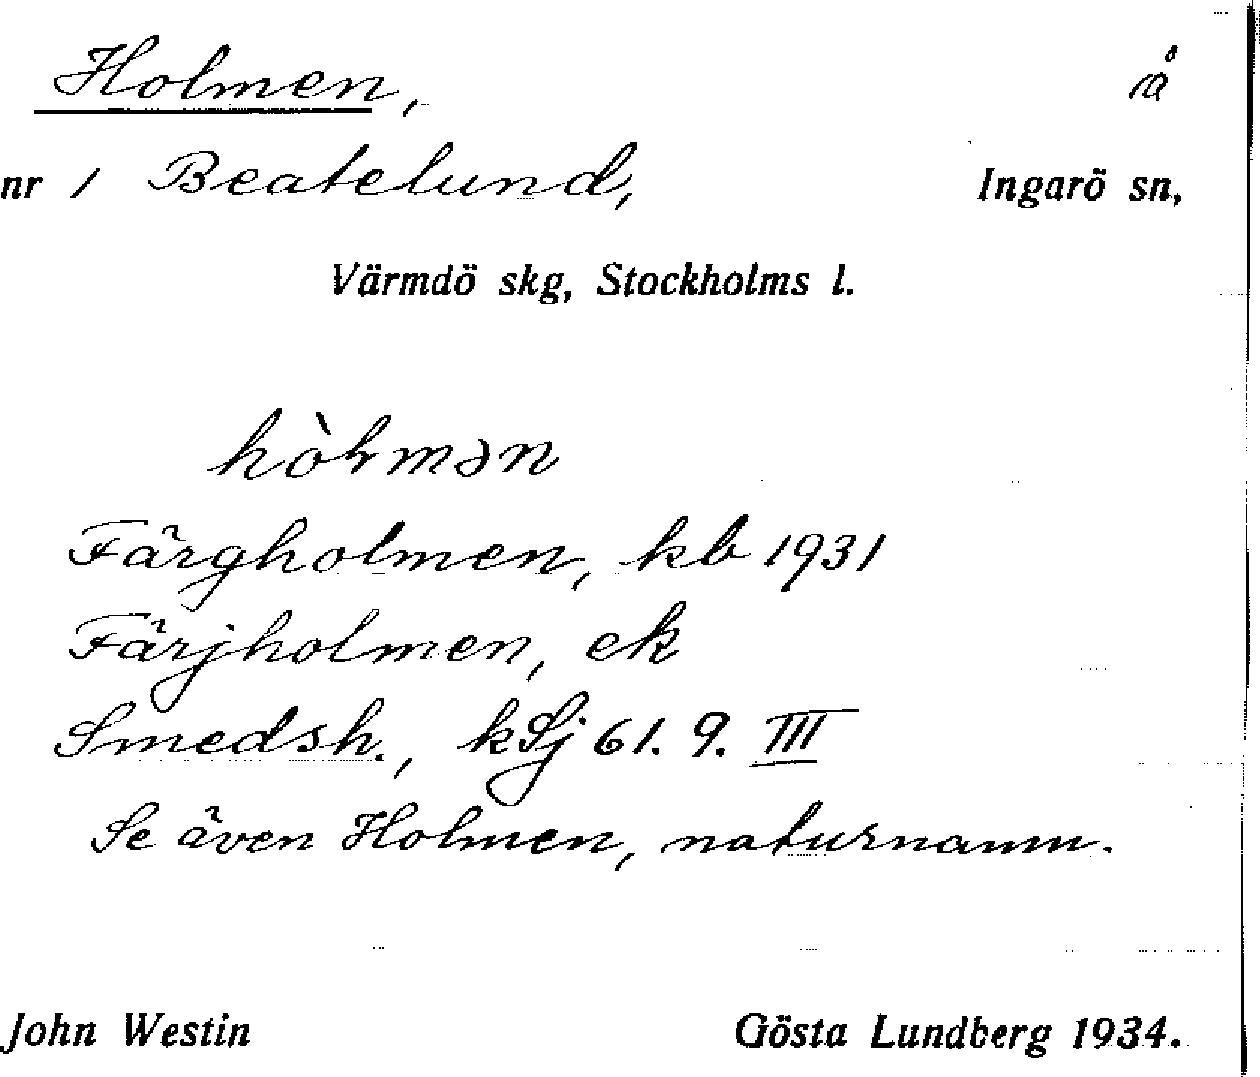 Holmen, å
nr 1 Beatelund, Ingarö sn,
Värmdö skg, Stockholms l.
hòlmən
Färgholmen, kb 1931
Färjholmen, ek
Smedsh., kSj 61. 9. III
Se även Holmen, naturnamn.
John Westin Gösta Lundberg 1934.